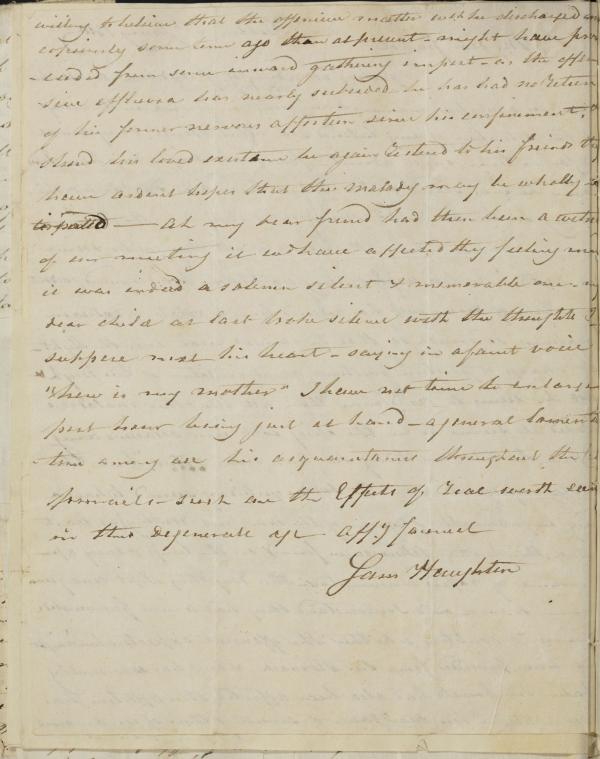 willing to believe that the offensive matter wch he discharged
copiously some time ago than at present - might have pro
ceeded from some inward gathering impost - as the offen
sive effluvia has nearly subsided he has had no return
of his former nervous affection since his confinement,
shoud his loved existence be again restored to his friends
have ardent hopes that this malady may be wholly
 — Ah my dear friend had thou been a witne
of our meeting it wd have affected thy feeling
it was indeed a solemn silent & memorable one -
dear child at last broke silence with the thoughts I
suppose next his heart - saying in a faint voice
"how is my mother" I have not time to enlarge
post hour being just at hand - a general lamenta
tion among all his acquaintance throughout the
 - such are the Effects of real worth even
in this degenerate age affy farewel
Sam Haughton